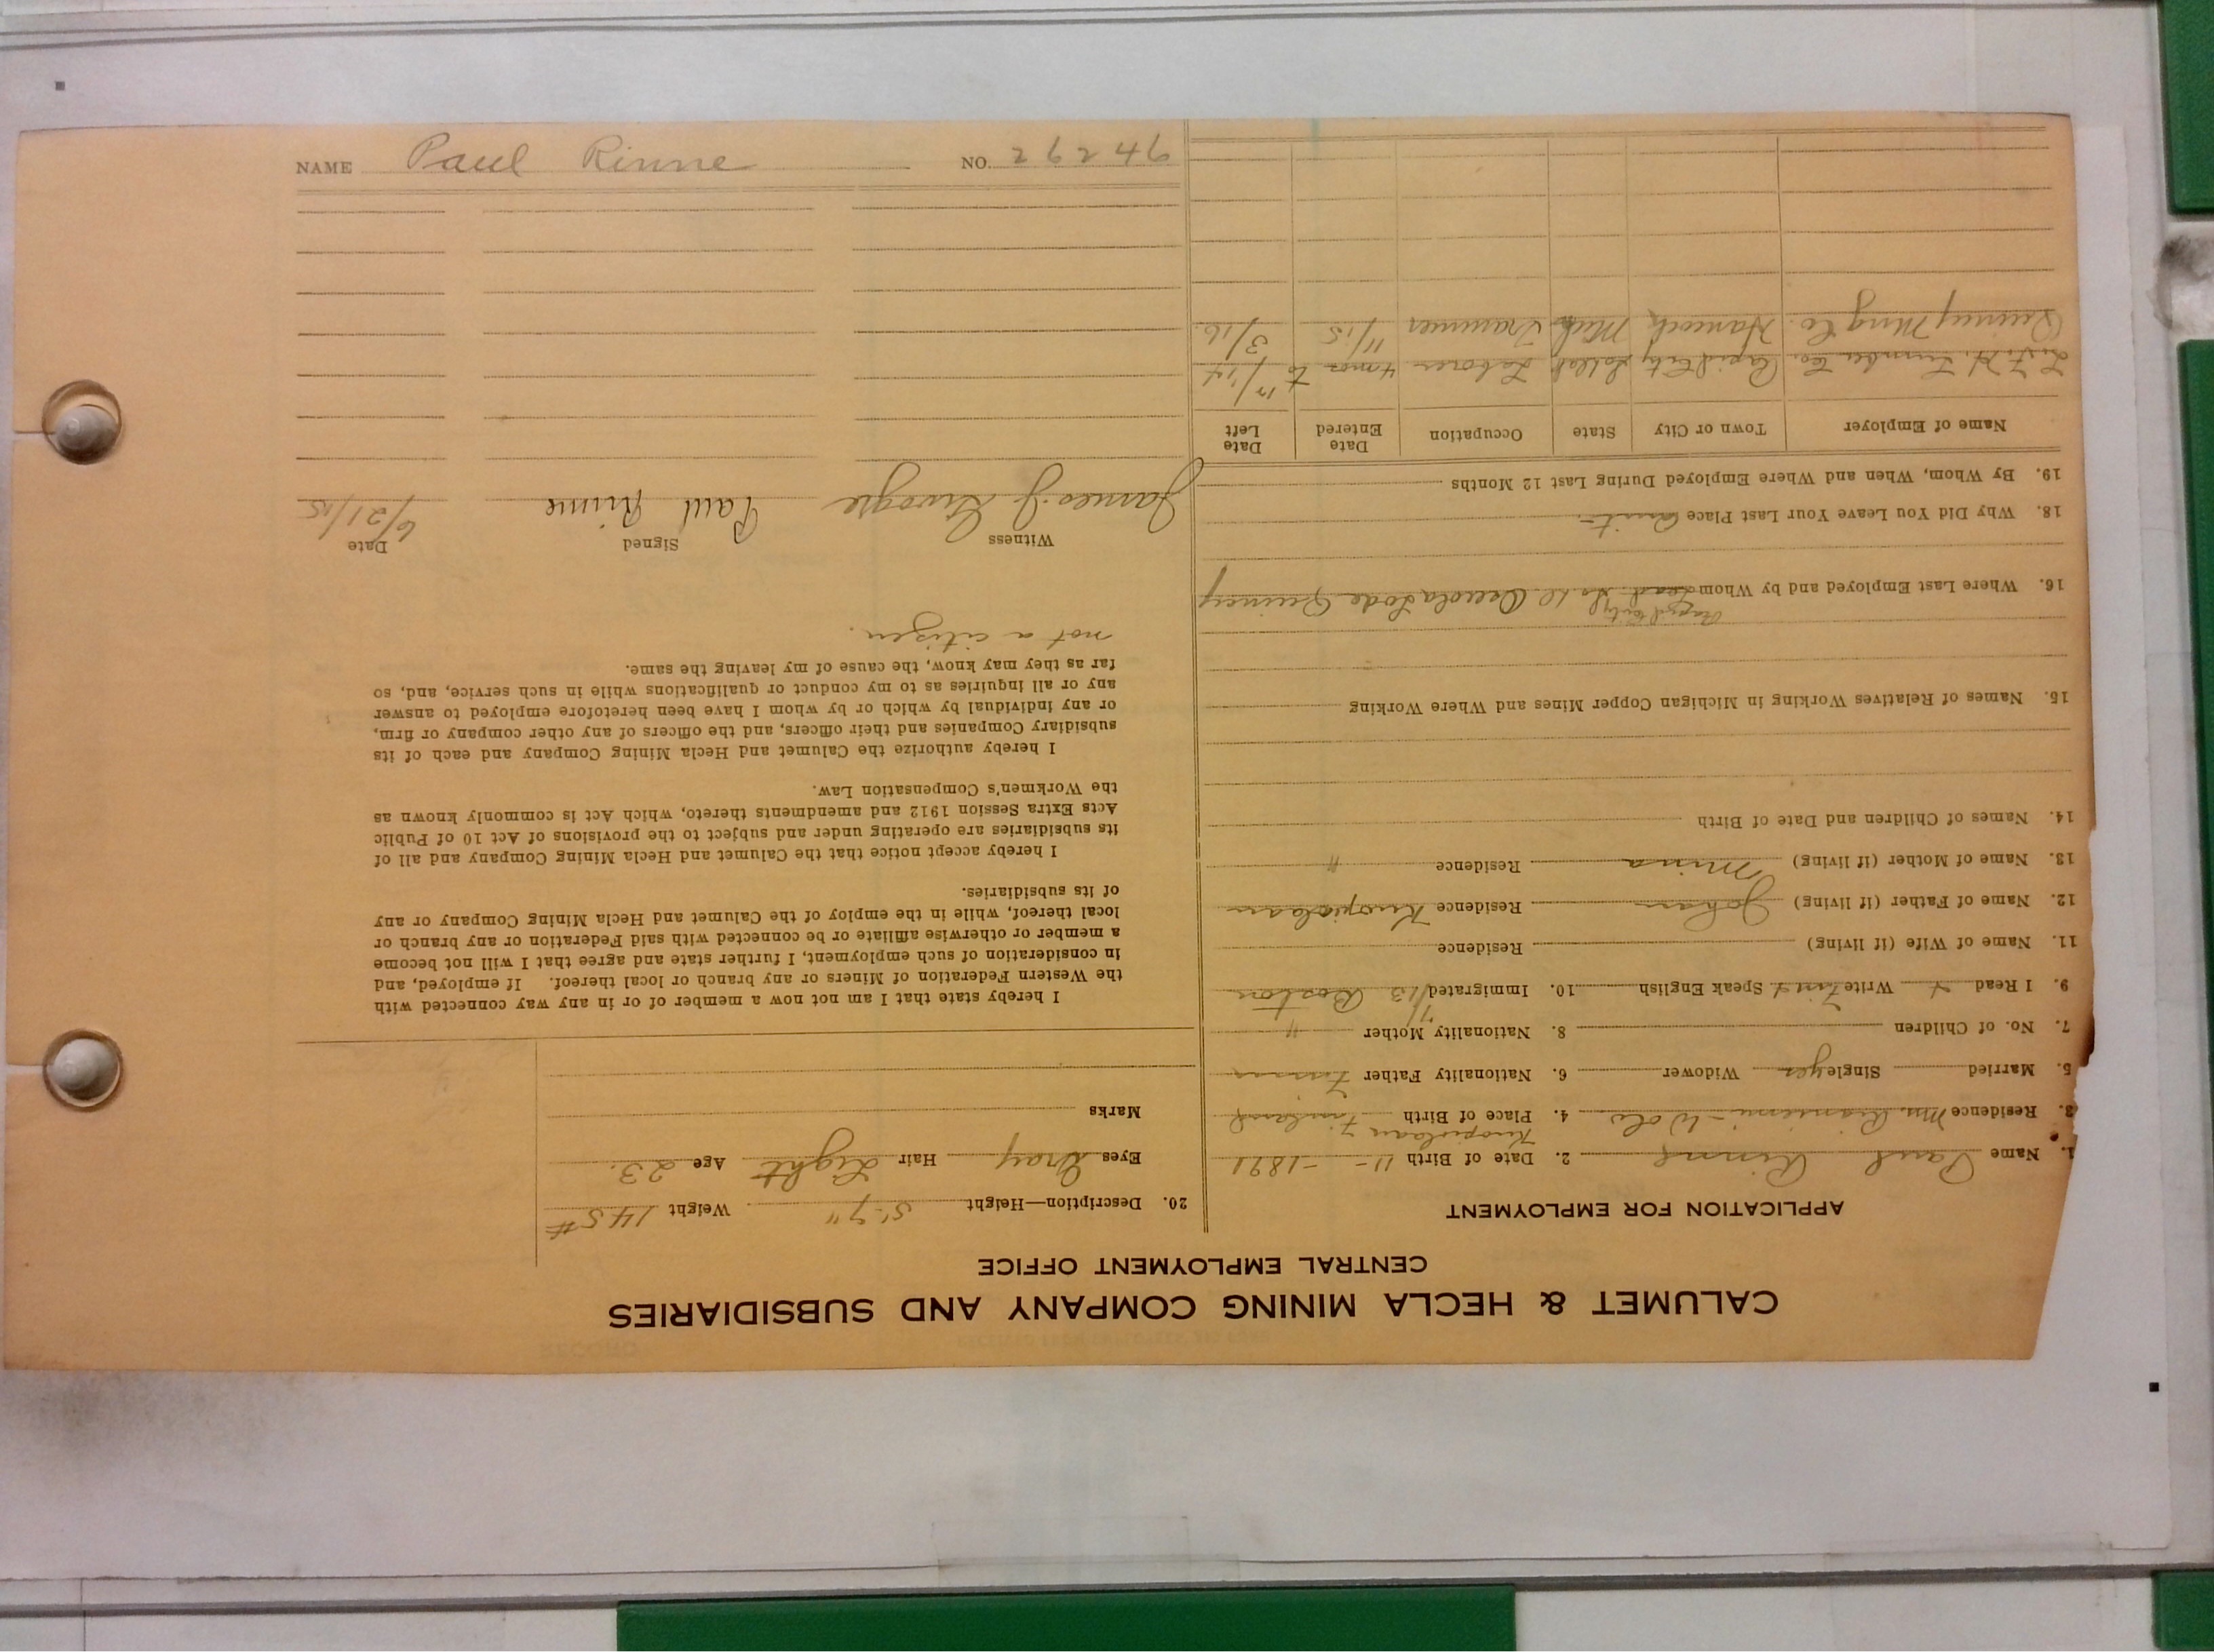 CALUMET & HECLA MINING COMPANY AND SUBSIDIARIES
CENTRAL EMPLOYMENT OFFICE
APPLICATION FOR EMPLOYMENT
1. Name Paul Rinne 2. Date of Birth 11 - -1891
3. Residence Mrs. 4. Place of Birth Finland
5. Married Single yes Widower 6. Nationality Father
7. No. of Children 8. Nationality Mother "
9. I Read Write Speak English 10. Immigrated 7/13 Boston
11. Name of Wife (if living) Residence
12. Name of Father (if living) Johan Residence
13. Name of Mother (if living) Mina Residence "
14. Names of Children and Date of Birth
15. Names of Relatives Working in Michigan Copper Mines and Where Working
Rapid City
16. Where Last Employed and by Whom Osceola Lode Quincy
18. Why Did You Leave Your Last Place Quit
19. By Whom, When and Where Employed During Last 12 Months
Name of Employer Town or City State Occupation Date Entered Date Left
Lumber Co. Rapid City Laborer 4 mos to
Quincy Mng Co. Hancock Mich Trammer 11/15 3/16
20. Description—Height 5'-7" Weight 145#
Eyes Gray Hair Light Age 23.
Marks
I hereby state that I am not now a member of or in any way connected with
the Western Federation of Miners or any branch or local thereof. If employed, and
in consideration of such employment, I further state and agree that I will not become
a member or otherwise affiliate or be connected with said Federation or any branch or
local thereof, while in the employ of the Calumet and Hecla Mining Company or any
of its subsidiaries.
I hereby accept notice that the Calumet and Hecla Mining Company and all of
its subsidiaries are operating under and subject to the provisions of Act 10 of Public
Acts Extra Session 1912 and amendments thereto, which Act is commonly known as
the Workmen's Compensation Law.
I hereby authorize the Calumet and Hecla Mining Company and each of its
subsidiary Companies and their officers, and the officers of any other company or firm,
or any individual by which or by whom I have been heretofore employed to answer
any or all inquiries as to my conduct or qualifications while in such service, and, so
far as they may know, the cause of my leaving the same.
not a citizen.
Witness Signed Date
James J. Paul Rinne 6/21/15
NAME Paul Rinne NO. 29246